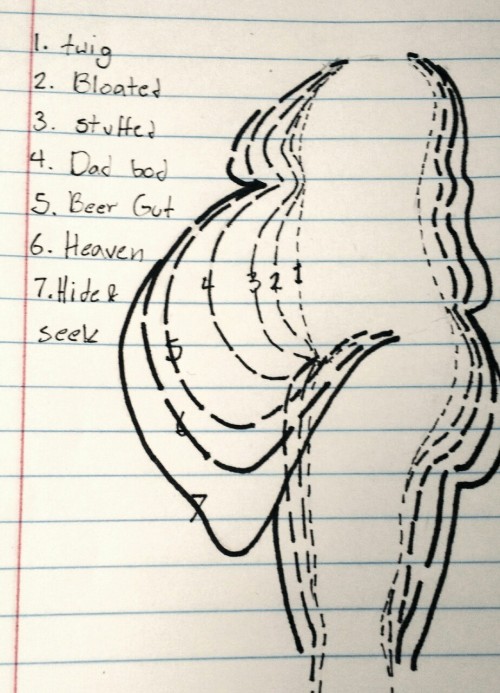 1. twig
2. Bloated
3. stuffed
4. Dad bod
5. Beer Gut
6. Heaven
7. Hide &
seek
4 3 2 1
5
6
7